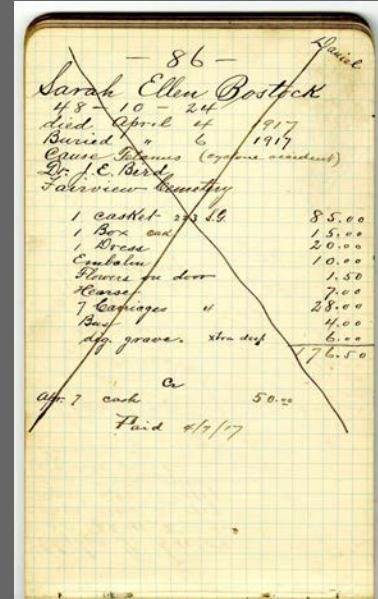 - 86 -
Daniel
Sarah Ellen Bostock
48 - 10 - 24
died April 4 1917
Buried " 6 1917
Cause Tetanus (cyclone accident)
Dr. J. E. Bird
Fairview Cemetery
1 casket 2x3 S.G. 85.00
1 Box 15.00
1 Dress 20.00
Embalm 10.00
Flowers on door 1.50
Hearse 7.00
7 Carriages 4 28.00
Bus 4.00
dig grave. xtra deep 6.00
176.50
Cr
Apr. 7 cash 50.00
Paid 4/7/17